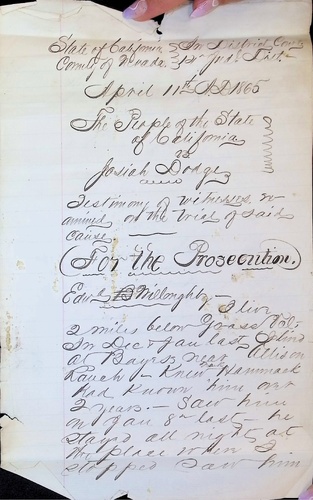 State of California } In District Court
County of Nevada } Jud. Dist.
April 11th A.D. 1865
The People of the State
of California
vs
Josiah Dodge
Testimony of witnesses ex-
amined on the trial of said
cause
For the Prosecution.
B Willoughby - I live
2 miles below Grass Val.
In Dec & Jan last I lived
at Bayers near Allison
Ranch - Knew Hammack
had known him over
2 years. - Saw him
on Jan 8th last - he
stayed all night at
the place where I
stopped Saw him